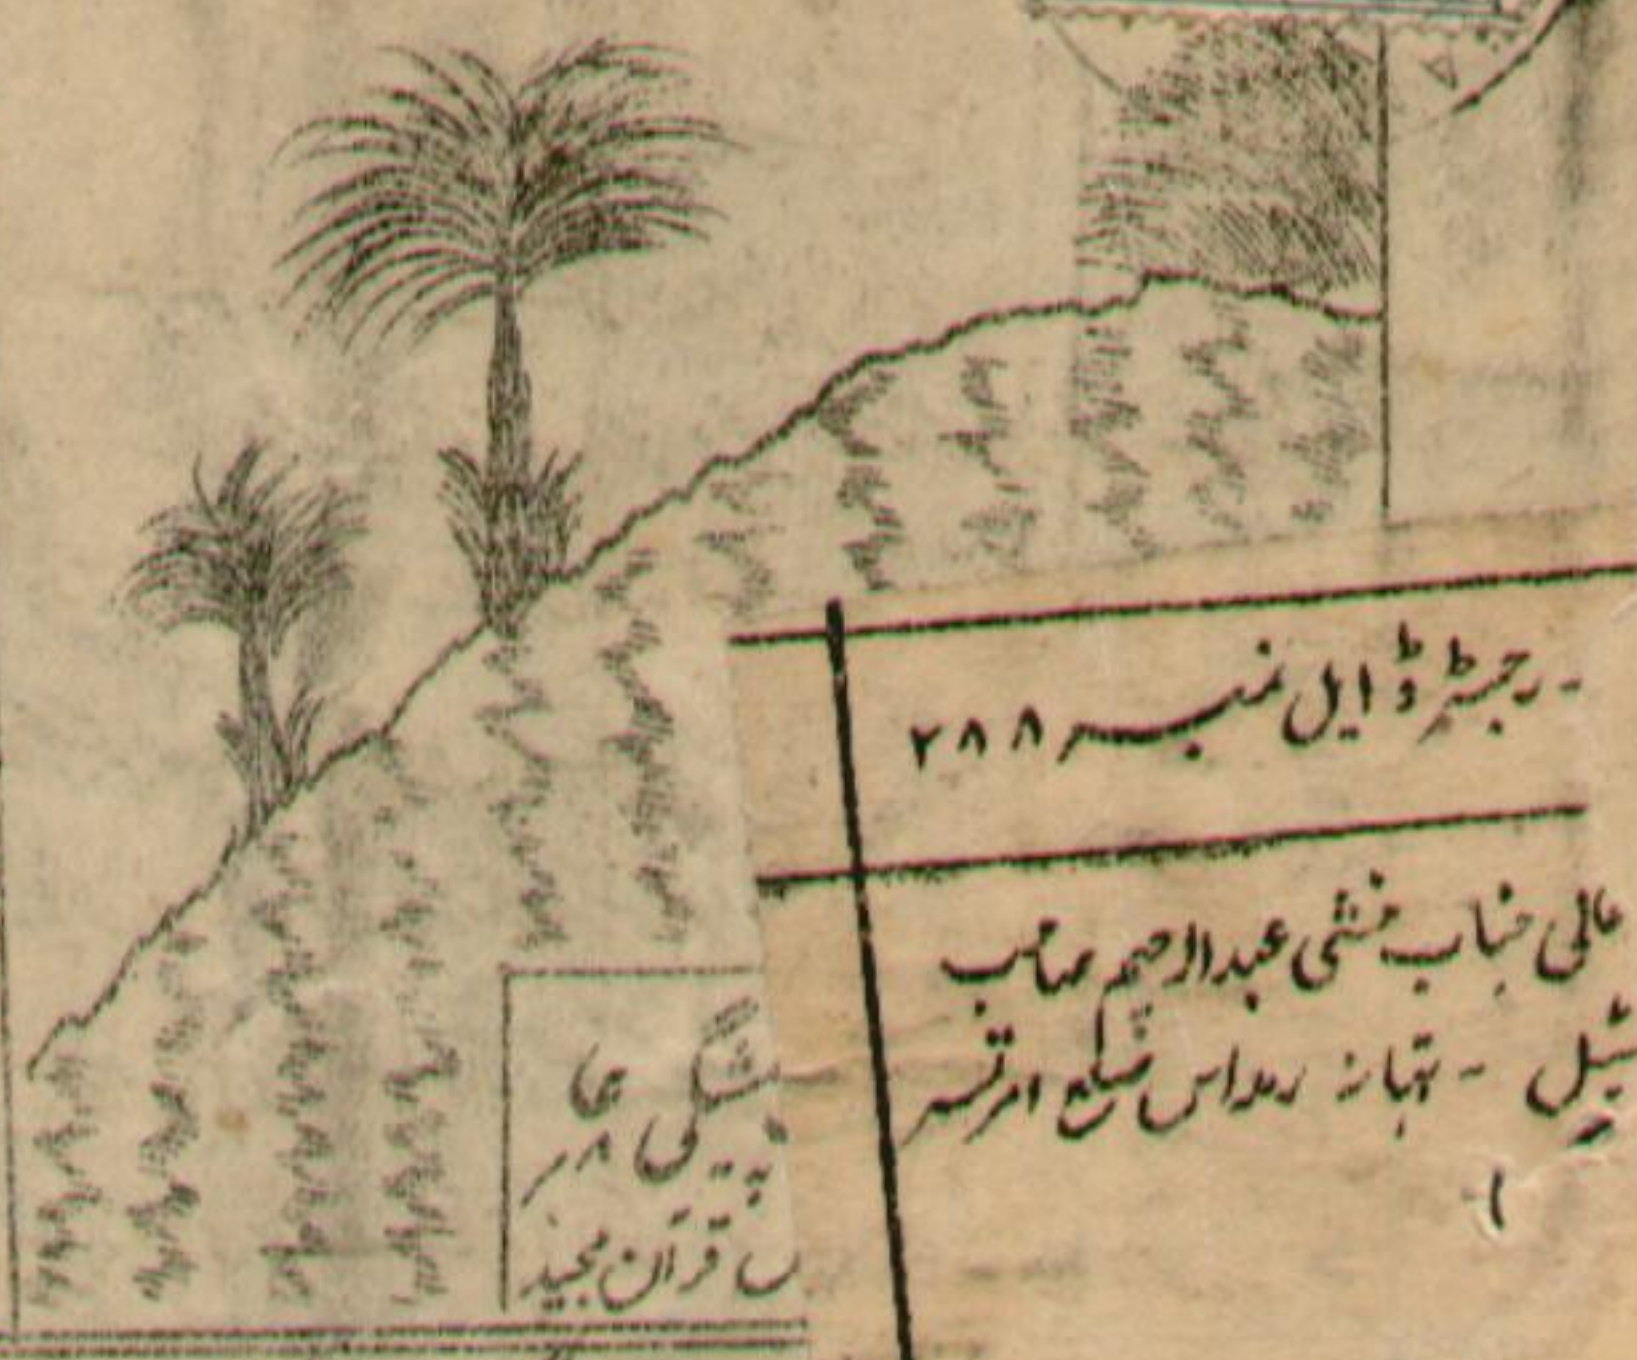 ۔ رجسٹرڈ ایل نمبر ۲۸۸
عالی جناب منشی عبدالرحیم صاحب
۔ تھانہ رمداس ضلع امرتسر
۱
پیشگی
قرآن مجید